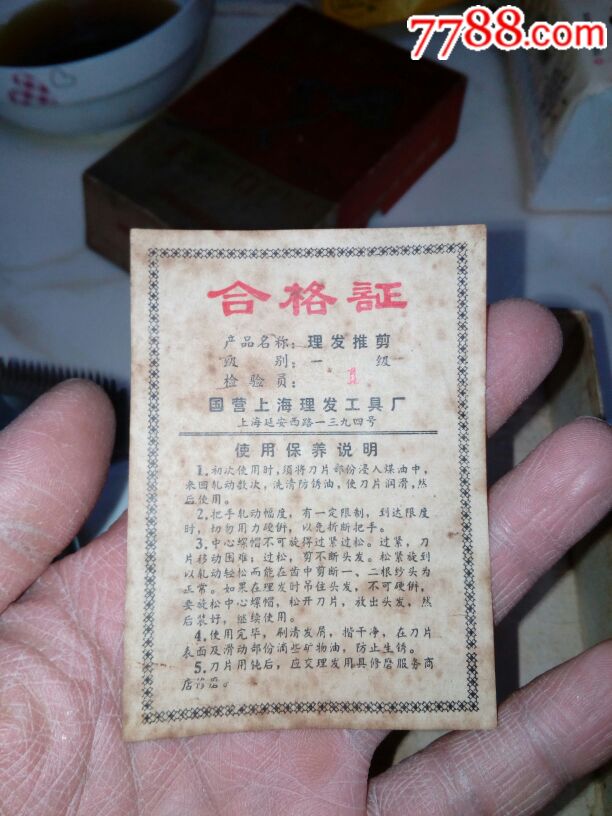 7788.com
合格証
产品名称：理发推剪
级别：一级
检验员：
国营上海理发工具厂
上海延安西路一三九四号
使用保养说明
1.初次使用时，须将刀片部份浸入煤油中，
来回轧动数次，洗清防锈油，使刀片润滑，然
后使用。
2.把手轧动幅度，有一定限制，到达限度
时，切勿用力硬㑣，以免折断把手。
3.中心螺帽不可旋得过紧过松。过紧，刀
片移动困难；过松，剪不断头发。松紧旋到
以轧动轻松而能在齿中剪断一、二根纱头为
正常。如果在理发时吊住头发，不可硬㑣，
要放松中心螺帽，松开刀片，放出头发，然
后装好，继续使用。
4.使用完毕，刷清发屑，揩干净，在刀片
表面及滑动部份滴些矿物油，防止生锈。
5.刀片用钝后，应交理发用具修磨服务商
店修磨。